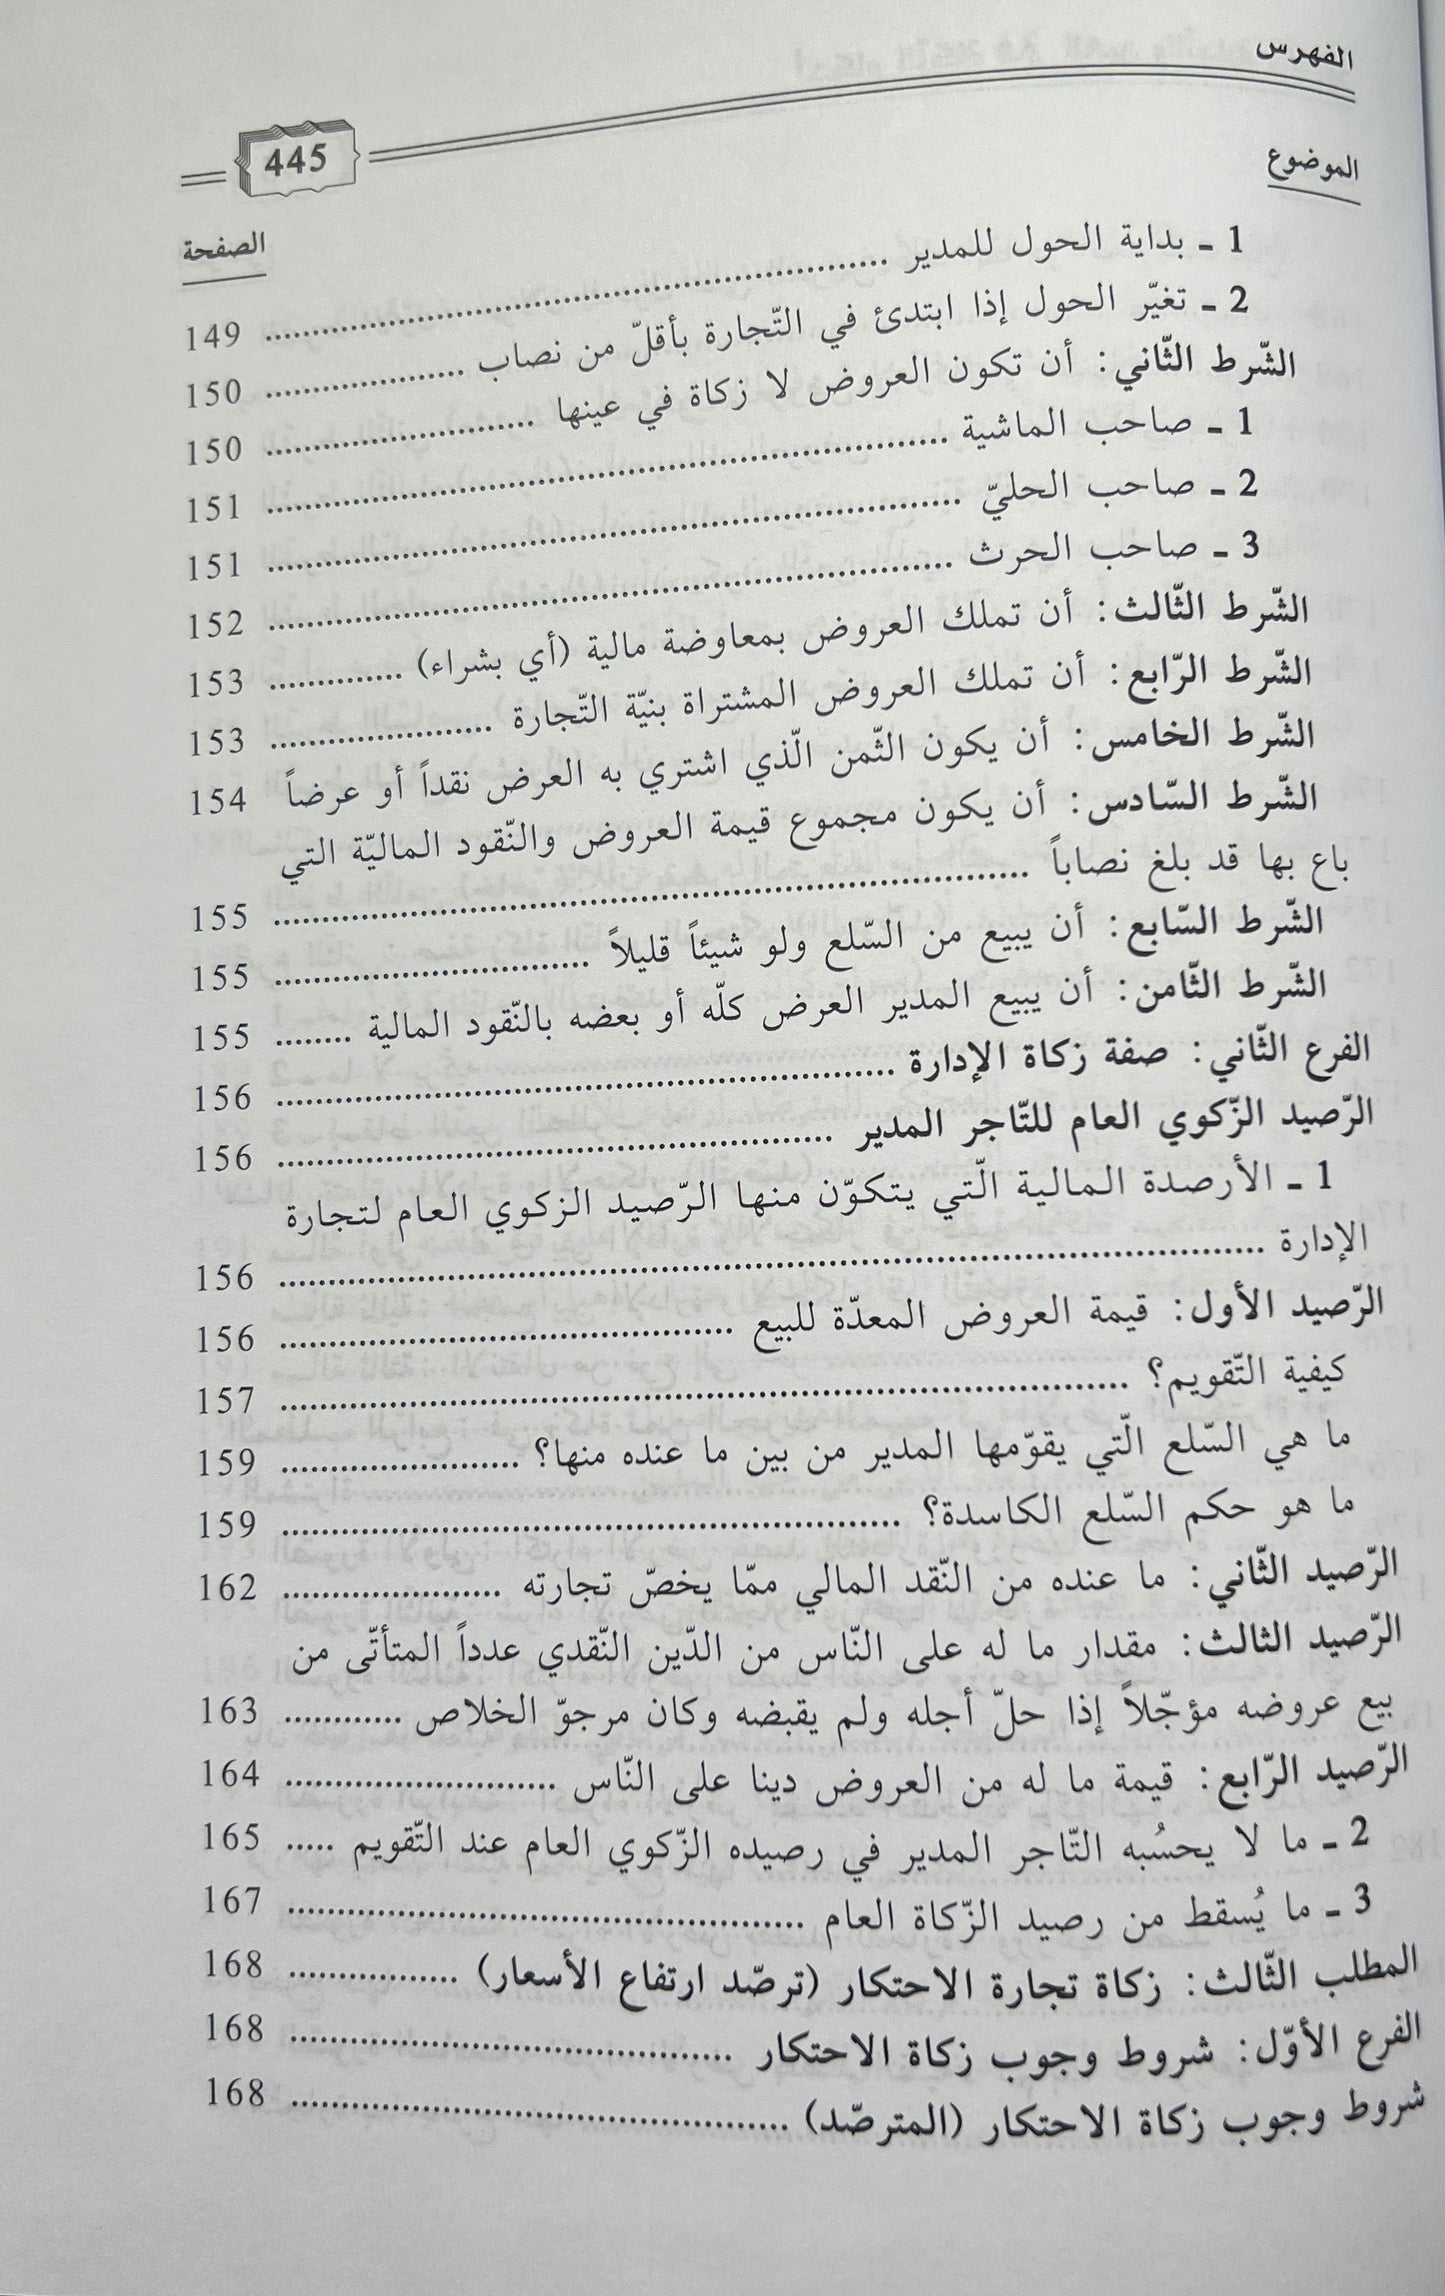 الفهرس
445
الموضوع
الصفحة
1 ـ بداية الحول للمدير ........ 149
2 ـ تغيّر الحول إذا ابتدئ في التّجارة بأقلّ من نصاب ........ 150
الشّرط الثّاني: أن تكون العروض لا زكاة في عينها ........ 150
1 ـ صاحب الماشية ........ 151
2 ـ صاحب الحليّ ........ 151
3 ـ صاحب الحرث ........ 152
الشّرط الثّالث: أن تملك العروض بمعاوضة مالية (أي بشراء) ........ 153
الشّرط الرّابع: أن تملك العروض المشتراة بنيّة التّجارة ........ 153
الشّرط الخامس: أن يكون الثّمن الّذي اشتري به العرض نقداً أو عرضاً 154
الشّرط السّادس: أن يكون مجموع قيمة العروض والنّقود الماليّة التي
باع بها قد بلغ نصاباً ........ 155
الشّرط السّابع: أن يبيع من السّلع ولو شيئاً قليلاً ........ 155
الشّرط الثّامن: أن يبيع المدير العرض كلّه أو بعضه بالنّقود المالية ........ 155
الفرع الثّاني: صفة زكاة الإدارة ........ 156
الرّصيد الزّكوي العام للتّاجر المدير ........ 156
1 ـ الأرصدة المالية الّتي يتكوّن منها الرّصيد الزكوي العام لتجارة
الإدارة ........ 156
الرّصيد الأول: قيمة العروض المعدّة للبيع ........ 156
كيفية التّقويم؟ ........ 157
ما هي السّلع الّتي يقوّمها المدير من بين ما عنده منها؟ ........ 159
ما هو حكم السّلع الكاسدة؟ ........ 159
الرّصيد الثّاني: ما عنده من النّقد المالي ممّا يخصّ تجارته ........ 162
الرّصيد الثالث: مقدار ما له على النّاس من الدّين النّقدي عدداً المتأتّى من
بيع عروضه مؤجّلاً إذا حلّ أجله ولم يقبضه وكان مرجوّ الخلاص ........ 163
الرّصيد الرّابع: قيمة ما له من العروض دينا على النّاس ........ 164
2 ـ ما لا يحسُبه التّاجر المدير في رصيده الزّكوي العام عند التّقويم ..... 165
3 ـ ما يُسقط من رصيد الزّكاة العام ........ 167
المطلب الثّالث: زكاة تجارة الاحتكار (ترصّد ارتفاع الأسعار) ........ 168
الفرع الأوّل: شروط وجوب زكاة الاحتكار ........ 168
شروط وجوب زكاة الاحتكار (المترصّد) ........ 168